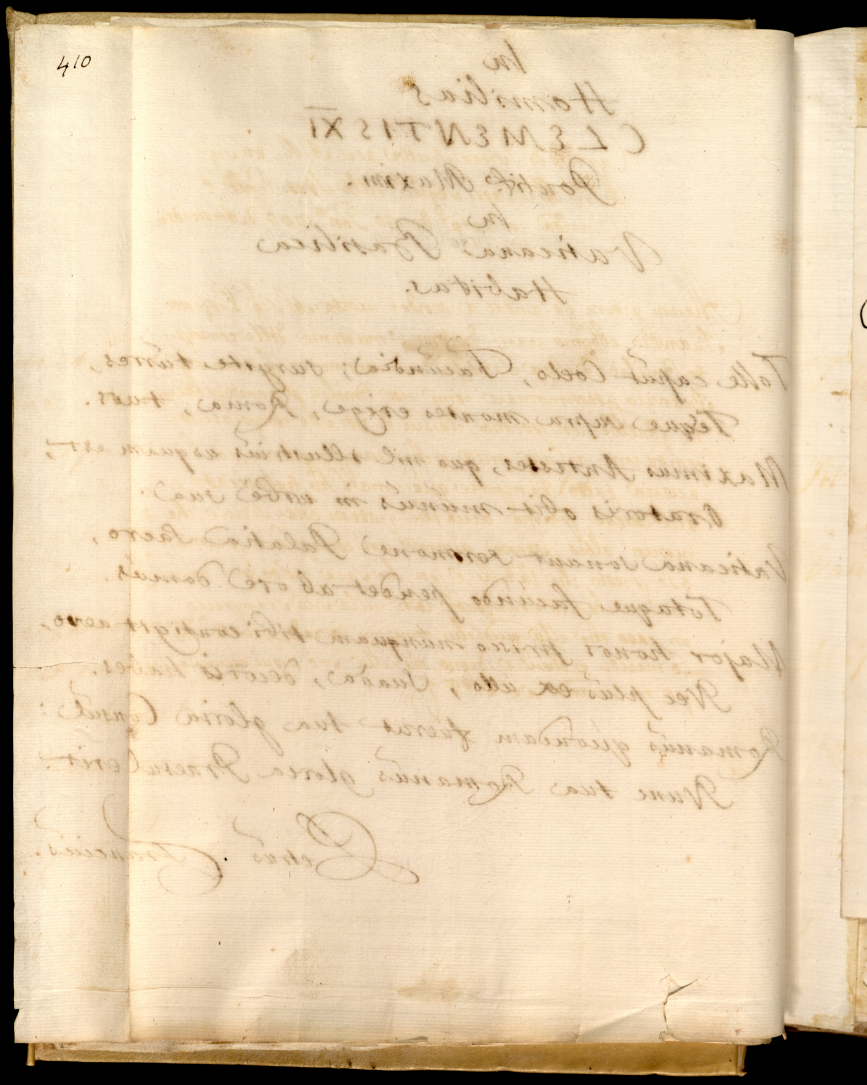 410
In
Homilias
CLEMENTIS XI
Pontif. Maxim.
In
Vaticana Basilica
Habitas.
Tolle caput Coelo, Facundia; surgite turres,
Téque supra montes erige, Roma, tuos.
Maximus Antistes, quo nil illustrius usquam est,
Oratoris obit munus in urbe sua.
Vaticana sonant sermone Palatia sacro,
Totaque facundo pendet ab ore domus.
Major honos prisco nunquam tibi contigit aevo,
Nec plus ex ullo, Suada, decoris habes.
Romanus quondam fuerat tua gloria Consul:
Nunc tua Romanus gloria Praesul erit.
Petrus Francius.